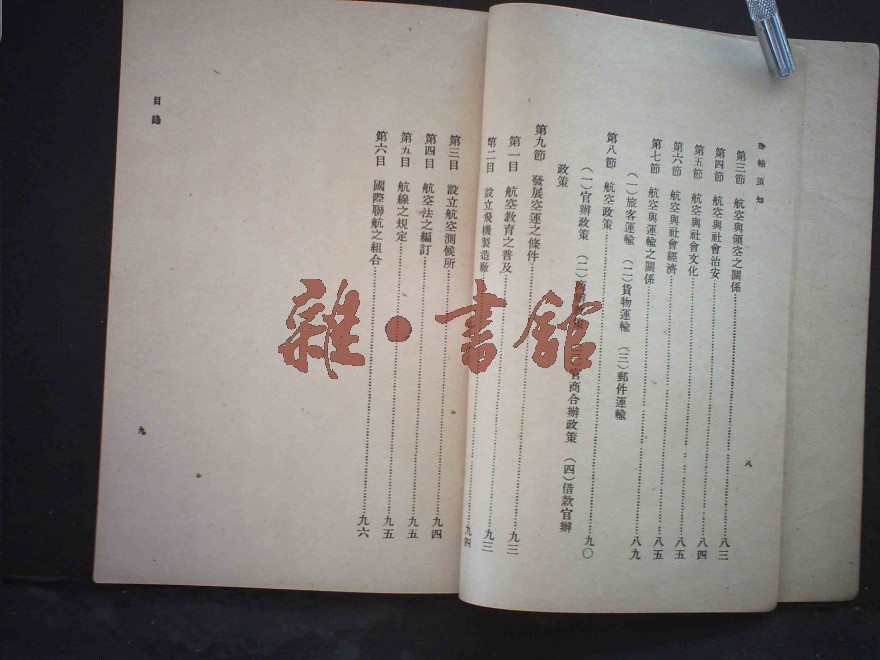 運輸須知
第三節 航空與領空之關係……八三
第四節 航空與社會治安……八四
第五節 航空與社會文化……八五
第六節 航空與社會經濟……八五
第七節 航空與運輸之關係……八九
(一)旅客運輸 (二)貨物運輸 (三)郵件運輸
第八節 航空政策……九〇
(一)官辦政策 (二)商辦政策 (三)官商合辦政策 (四)借款官辦
政策
第九節 發展空運之條件……九三
第一目 航空教育之普及……九三
第二目 設立飛機製造廠……九四
八
第三目 設立航空測候所……九四
第四目 航空法之編訂……九五
第五目 航線之規定……九五
第六目 國際聯航之組合……九六
目錄
九
雜·書館